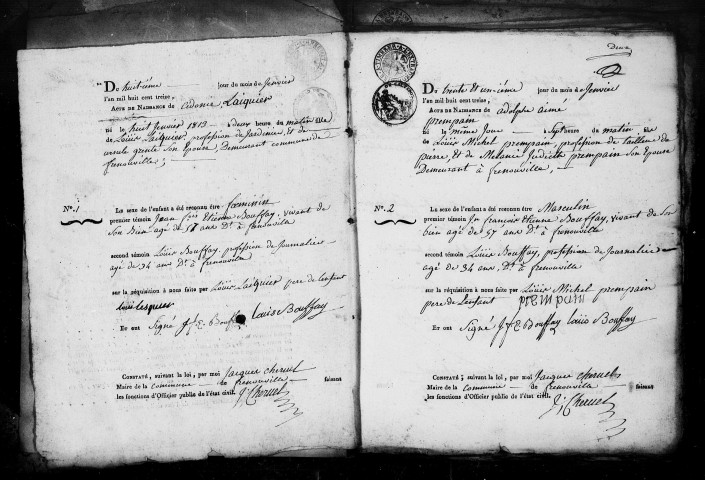 Du huitième jour du mois de Janvier
l'an mil huit cent treize,
ACTE DE NAISSANCE de Cidonie Laiguier
né le huit Janvier 1813 à deux heure du matin fille
de Louis Laiguier, profession de Jardinier, et de
ursule son Epouse, Demeurant commune de
frenouville;
N.° 1
LE sexe de l'enfant a été reconnu être féminin
premier témoin Jean f.cois Etienne Bouffay, vivant de
Son Bien agé de 57 ans D.t à frenouville
second témoin Louis Bouffay, profession de Journalier
agé de 34 ans D.t à frenouville
sur la réquisition à nous faite par Louis Laiguier pere de l'enfant
Et ont Signé J f E Bouffay Louis Bouffay
CONSTATÉ, suivant la loi, par moi Jacques cheruel
Maire de la commune de frenouville faisant
les fonctions d'Officier public de l'état civil. J. Cheruel
Deux
2
DU trente et unième jour du mois de Janvier
l'an mil huit cent treize,
ACTE DE NAISSANCE de adolphe aimé
prempain
né le même Jour à Sept heure du matin
de Louis Michel prempain, profession de tailleur de
pierre, et de Melanie Judith prempain Son Epouse
Demeurant à frenouville,
N.° 2
LE sexe de l'enfant a été reconnu être Masculin
premier témoin Jn francois Etienne Bouffay, vivant de Son
bien agé de 57 ans D.t à frenouville
second témoin Louis Bouffay, profession de Journalier
agé de 34 ans, D.t à frenouville
sur la réquisition à nous faite par Louis Michel prempain
pere de l'enfant prempain
Et ont Signé J f E Bouffay Louis Bouffay
CONSTATÉ; suivant la loi, par moi Jacques cheruel
Maire de la commune de frenouville faisant
les fonctions d'Officier public de l'état civil.
J. Cheruel